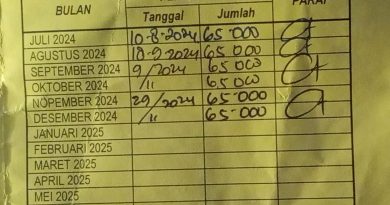 BULAN Tanggal Jumlah PARAF
JULI 2024 10-8-2024 65.000
AGUSTUS 2024 18-9-2024 65.000
SEPTEMBER 2024 9/2024 65.000
OKTOBER 2024 /11 65.000
NOPEMBER 2024 29/2024 65.000
DESEMBER 2024 /11 65.000
JANUARI 2025
FEBRUARI 2025
MARET 2025
APRIL 2025
MEI 2025